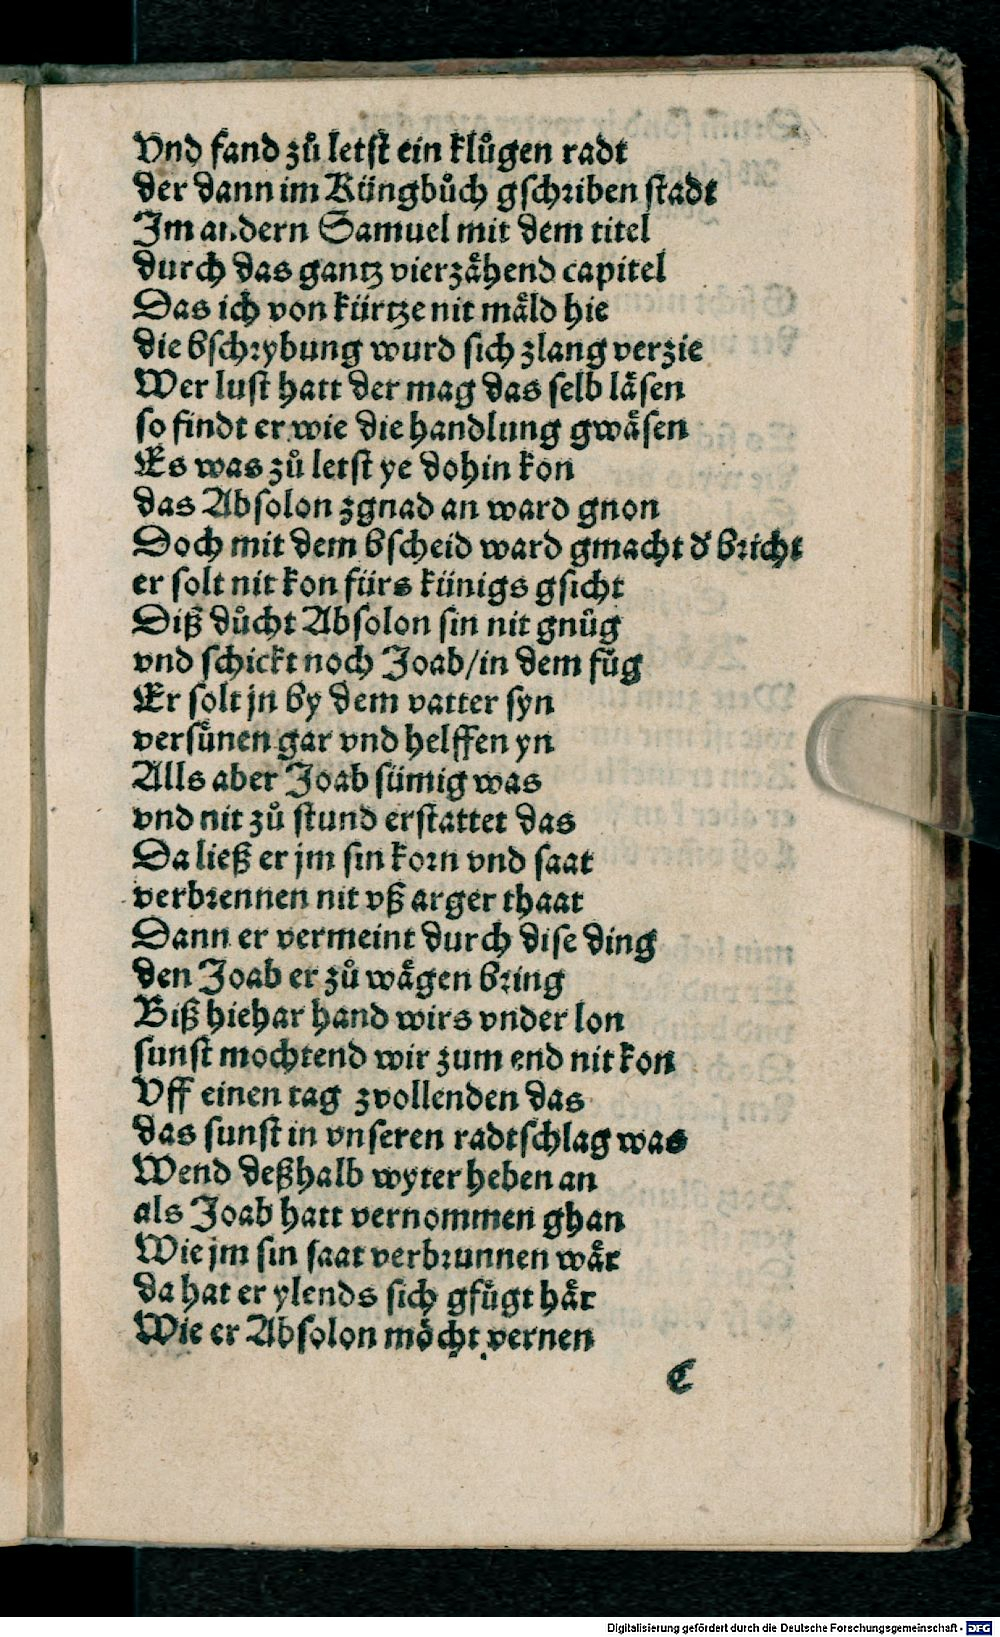 Vnd fand zů letst ein klůgen radt
der dann im Küngbůch gschriben stadt
Im andern Samuel mit dem titel
durch das gantz vierzåhend capitel
Das ich von kürtze nit måld hie
die bschrybung wurd sich zlang verzie
Wer lust hatt der mag das selb låsen
so findt er wie die handlung gwåsen
Es was zů letst ye dohin kon
das Absolon zgnad an ward gnon
Doch mit dem bscheid ward gmacht d' bricht
er solt nit kon fürs künigs gsicht
Diß důcht Absolon sin nit gnůg
vnd schickt noch Joab/in dem fůg
Er solt jn by dem vatter syn
versůnen gar vnd helffen yn
Alls aber Joab sümig was
vnd nit zů stund erstattet das
Da ließ er jm sin korn vnd saat
verbrennen nit vß arger thaat
Dann er vermeint durch dise ding
den Joab er zů wågen bring
Biß hiehar hand wirs vnder lon
sunst mochtend wir zum end nit kon
Vff einen tag zvollenden das
das sunst in vnseren radtschlag was
Wend deßhalb wyter heben an
als Joab hatt vernommen ghan
Wie jm sin saat verbrunnen wår
da hat er ylends sich gfůgt hår
Wie er Absolon möcht vernen
C
Digitalisierung gefördert durch die Deutsche Forschungsgemeinschaft - DFG